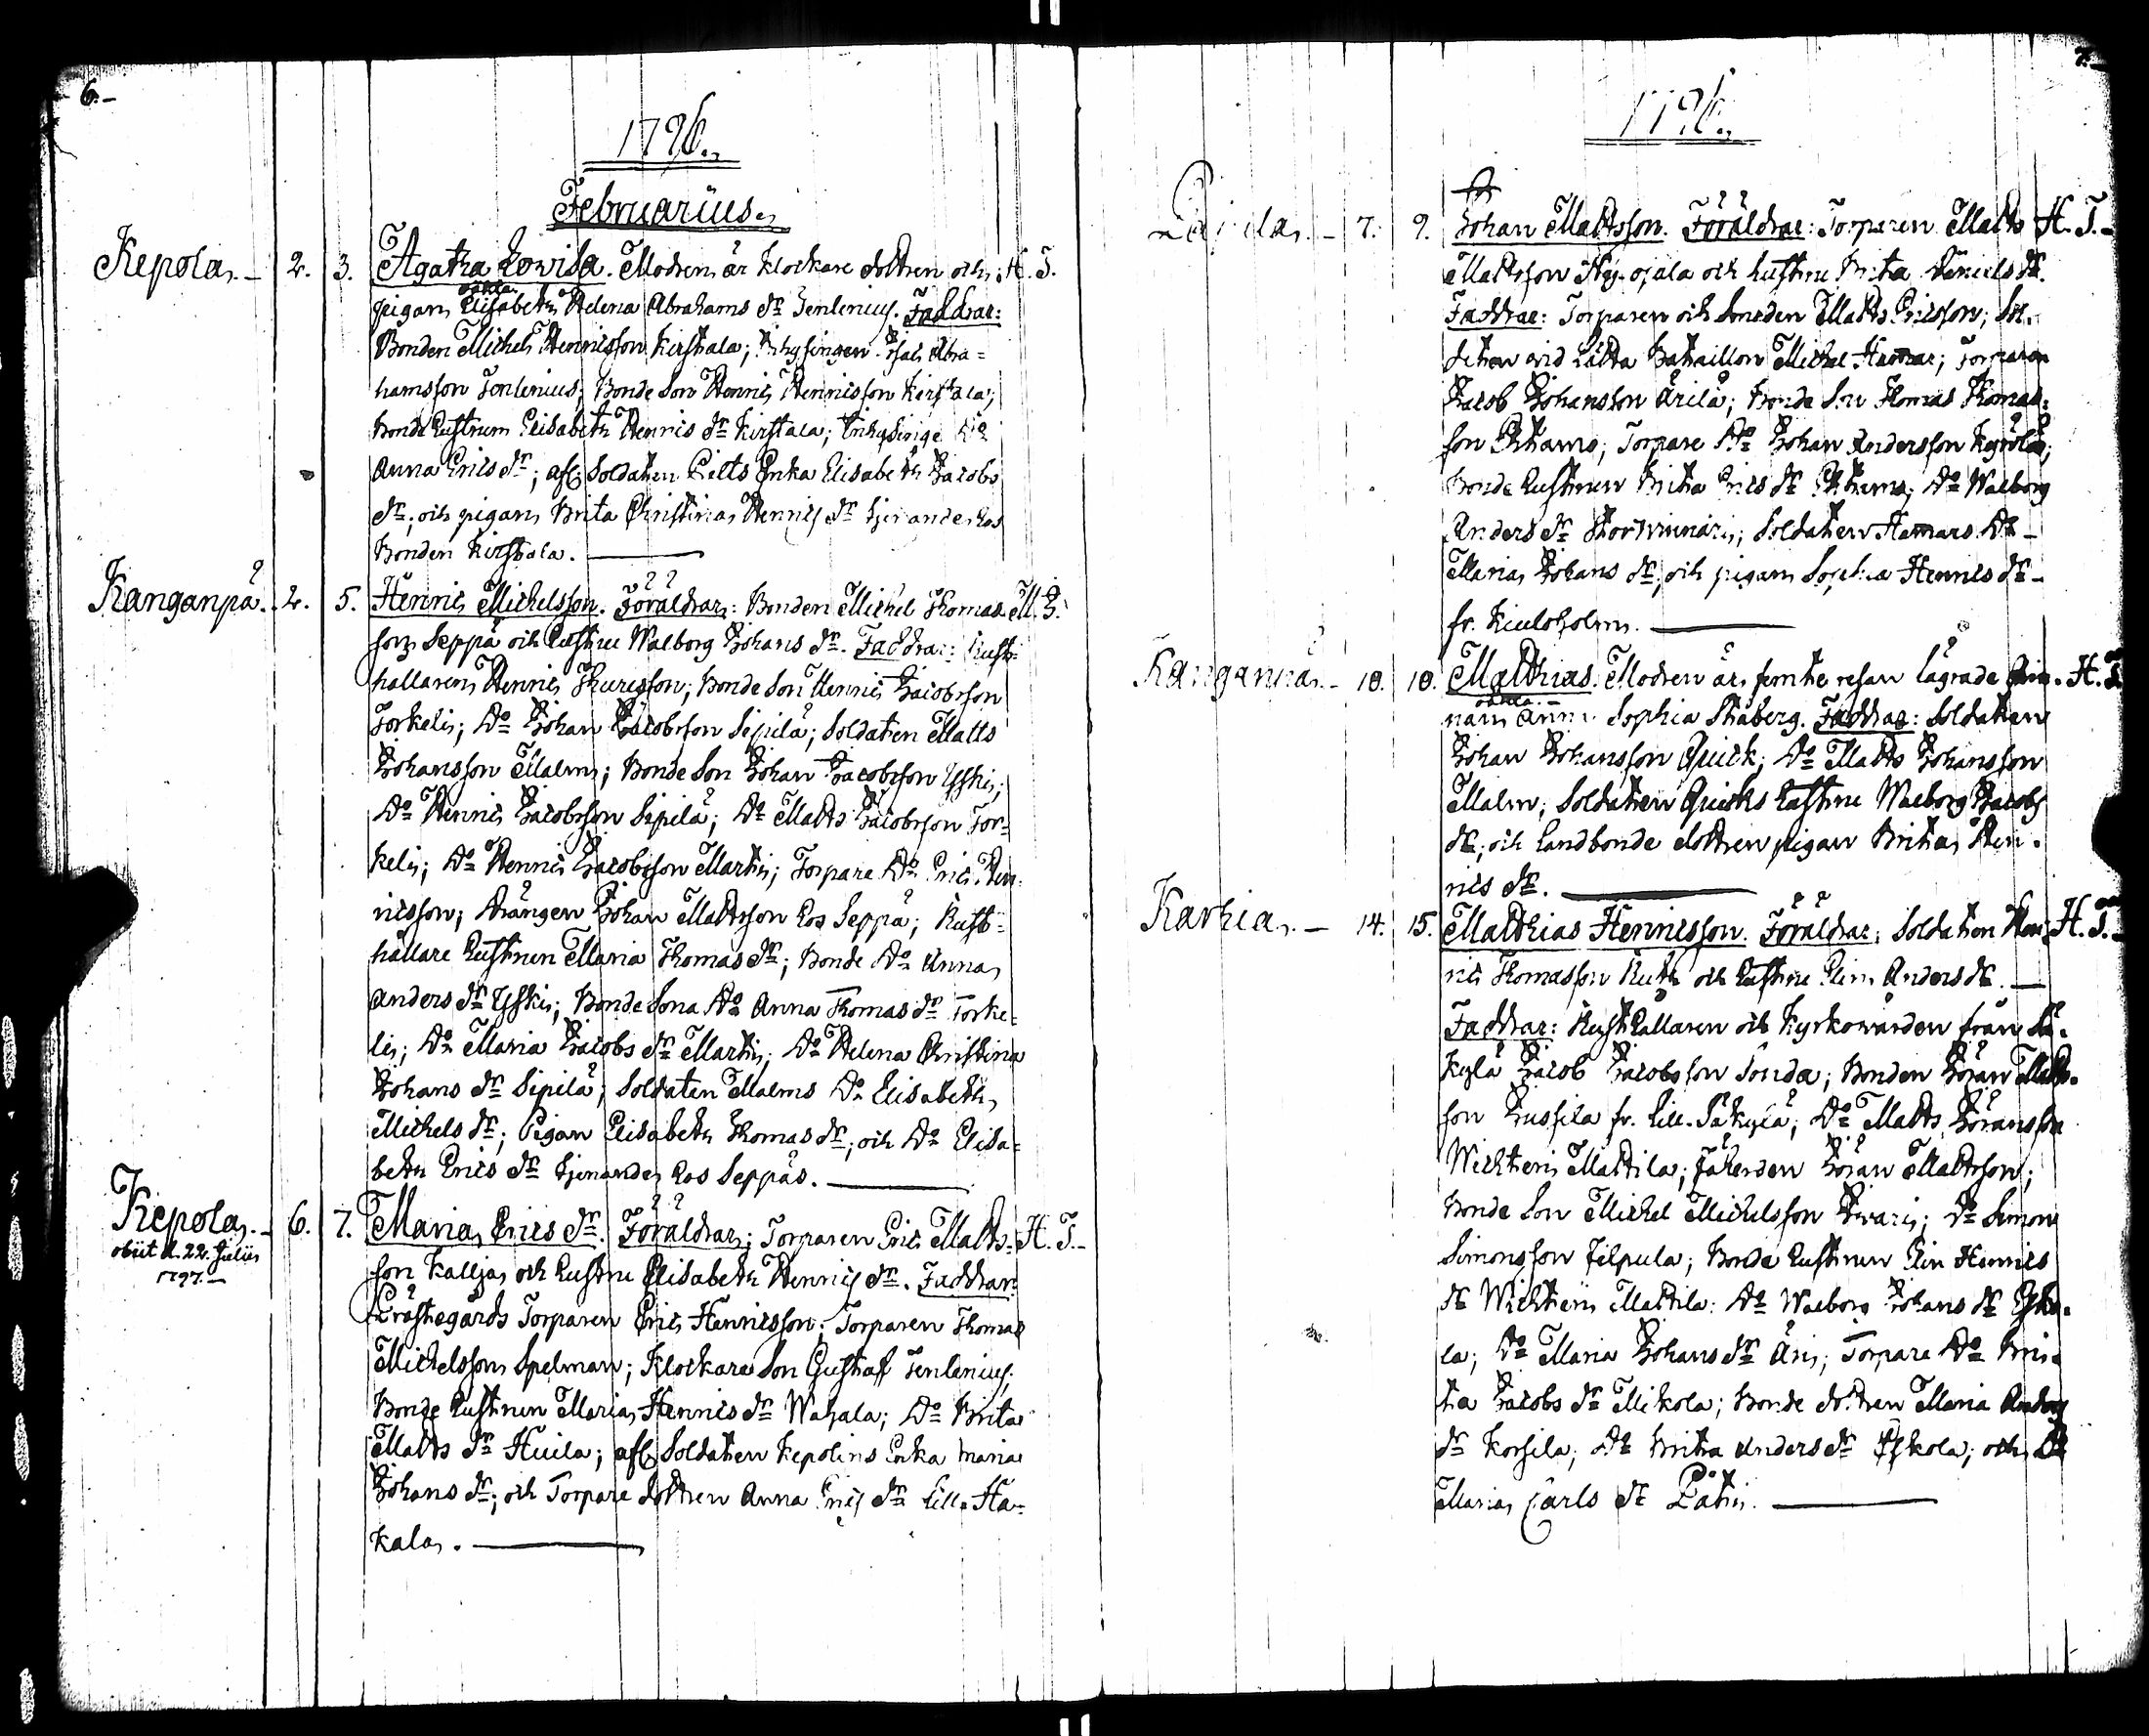 6.
1796.
Februarius.
Kepola. 2. 3. Agatha Lovisa. Modren är klockare dottren och H. T.
säkla
pigan Elisabeth Helena Abrahams dr Tenlenius. Faddrar:
Bonden Michel Hennicsson Kirstala; Inhysingen Isac Abra=
hamsson Tenlenius; Bonde Son Hennic Hennicsson Kirstala;
Bonde Hustrun Elisabeth Hennics dr Kirstala; Inhysinge Do
Anna Erics dr; afl. Soldaten Pilts Enka Elisabeth Jacobs
dr; och pigan Brita Christina Hennics dr tjenande hos
Bonden Kirstala.
Kanganpä. 2. 5. Hennic Michelsson. Föräldrar: Bonden Michel Thomas- M. J.
son Seppä och Hustru Walborg Johans dr. Faddrar: Rust-
hållaren Hennic Thuresson; Bonde Son Hennic Jacobsson
Torkelis; Do Johan Jacobsson Sipilä; Soldaten Matts
Johansson Malm; Bonde Son Johan Jacobsson Ysskis;
Do Hennic Jacobsson Sipilä; Do Matts Jacobsson Tor=
kelis; Do Hennic Jacobsson Martis; Torpare Do Eric Hen-
nicsson; Drängen Johan Mattsson hos Seppä; Rust=
hållare Hustrun Maria Thomas dr; Bonde Do Anna
Anders dr Ysskis; Bonde Sona Do Anna Thomas dr Torke=
lis; Do Maria Jacobs dr Martis; Do Helena Christina
Johans dr Sipilä; Soldaten Malms Do Elisabeth
Michels dr; Pigan Elisabeth Thomas dr; och Do Elisa=
beth Erics dr tjenande hos Seppäs.
Kepola. 6. 7. Maria Erics dr. Föräldrar: Torparen Eric Matts- H. T.
obiit d. 22. Julii
1797.
son Kallja och Hustru Elisabeth Hennics dr. Faddrar:
Prästegårds Torparen Eric Hennicsson; Torparen Thomas
Michelsson Spelman; Klockare Son Gustaf Tenlenius;
Bonde Hustrun Maria Hennics dr Wahala; Do Brita
Matts dr Huila; afl. Soldaten Kepolins Enka Maria
Johans dr; och Torpare dottren Anna Erics dr Lill-Ha-
kala.
7.
1796.
7. 9. Johan Mattsson. Föräldrar: Torparen Matts H. T.
Mattsson Ny-ojala och hustru Brita Daniels dr.
Faddrar: Torparen och Smeden Matts Ericsson; Sol-
daten vid Lätta Bataillon Michel Hamar; Torparen
Jacob Johansson Ärilä; Bonde Son Thomas Thomas-
son; Torpare Do Johan Andersson;
Bonde Hustrun Brita Erics dr; Do Walborg
Anders dr; Soldaten Hamars Do
Maria Johans dr; och pigan Sophia Hennics dr
fr. Kiuloholm.
Kanganpä. 10. 10. Matthias. Modren är femte resan lägrade H. T.
säkla
Anna Sophia Ståberg. Faddrar: Soldaten
Johan Johansson Quick; Do Matts Johansson
Malm; Soldaten Quicks Hustru Walborg Jacobs
dr; och Landbonde dottren pigan Brita Hen-
nics dr.
Karhia. 14. 15. Matthias Hennicsson. Föräldrar: Soldaten Hen- H. T.
nic Thomasson och Hustru Elin Anders dr.
Faddrar: Rusthållaren och Kyrkowärden från Sä-
kylä Jacob Jacobsson Sonda; Bonden Johan Matts-
son Jussila fr. Lill-Säkylä; Do Matts Johansson
Wichteri Mattila; Johan Mattsson;
Bonde Son Michel Michelsson Iivari; Do Simon
Simonsson Filpula; Bonde Hustrun Elin Hennics
dr Wichteri Mattila; Do Walborg Johans dr Esko-
la; Do Maria Johans dr Äri; Torpare Do Bri-
ta Jacobs dr Mikola; Bonde dottren Maria Anders
dr Korsila; Do Brita Anders dr Eskola; och Do
Maria Carls dr Pätis.